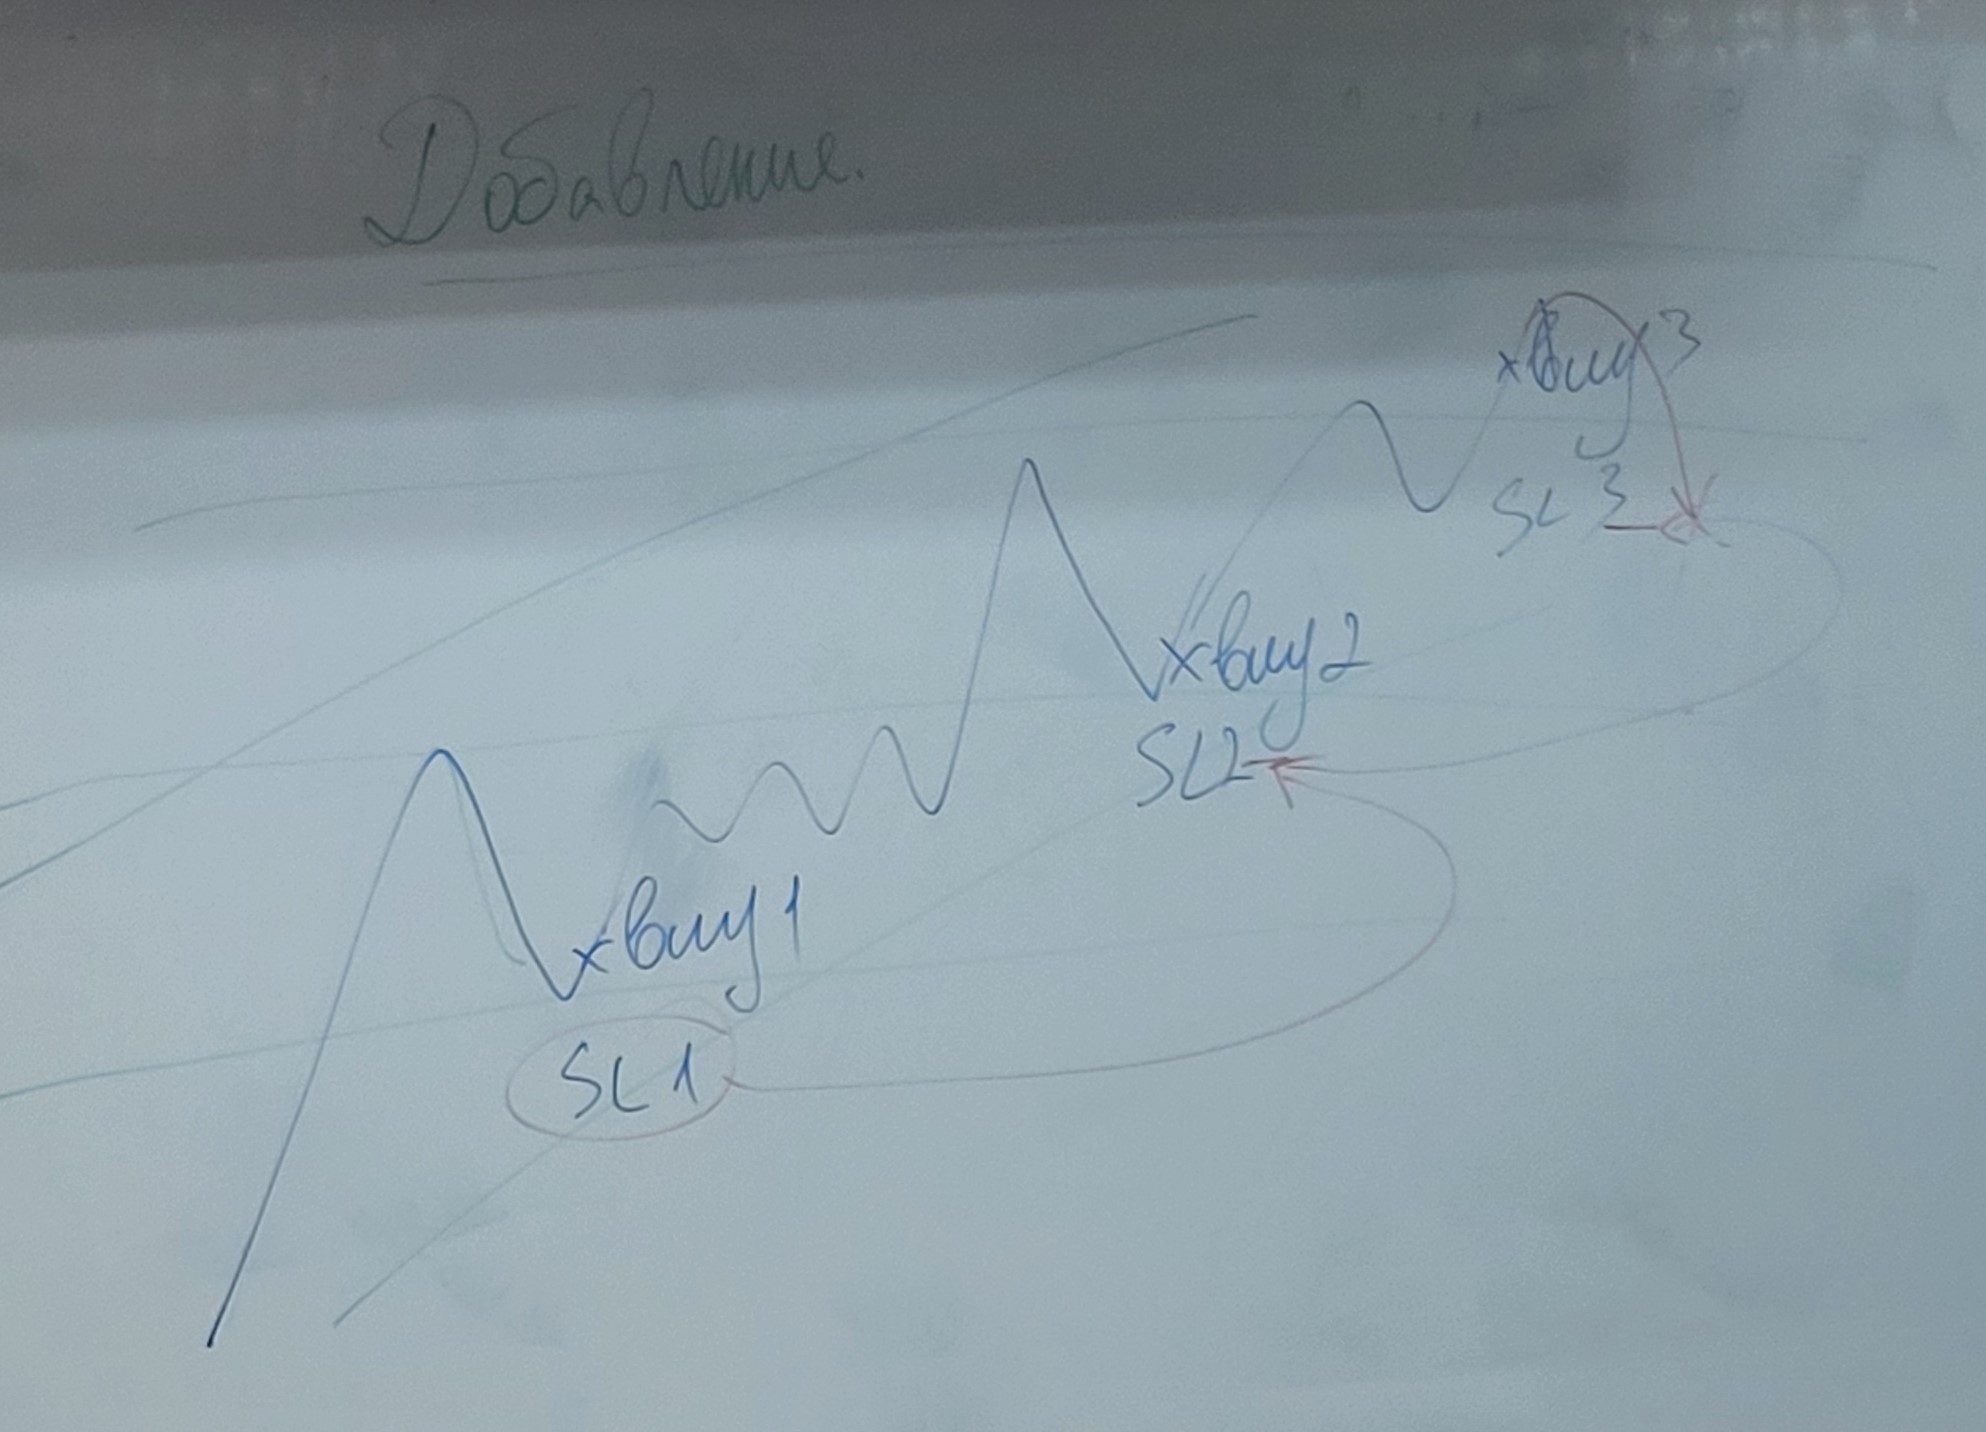 Добавление.
xbuy3
SL3
xbuy2
SL2
xbuy1
SL1